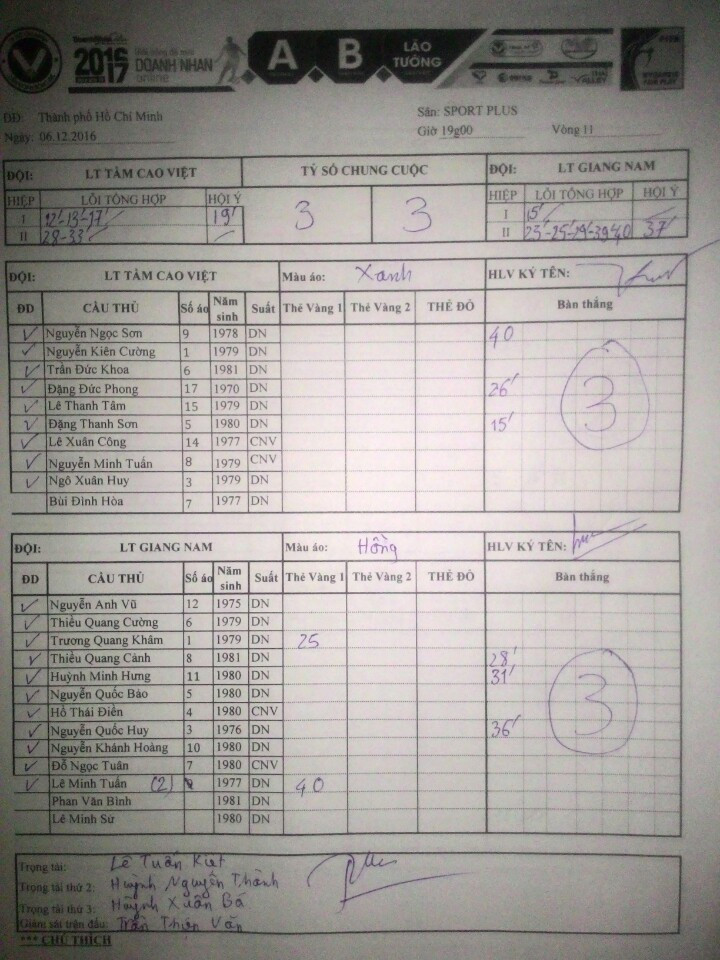 2016
2017
DOANH NHÂN
online
A
B
LÃO
TƯỚNG
ĐĐ: Thành phố Hồ Chí Minh
Sân: SPORT PLUS
Ngày: 06.12.2016
Giờ 19g00 Vòng 11
ĐỘI: LT TÂM CAO VIỆT TỶ SỐ CHUNG CUỘC ĐỘI: LT GIANG NAM
HIỆP LỖI TỔNG HỢP HỘI Ý 3 3 HIỆP LỖI TỔNG HỢP HỘI Ý
I 12'-13-17' 19' I 15'
II 28-33' II 37'
ĐỘI: LT TÂM CAO VIỆT Màu áo: Xanh HLV KÝ TÊN:
ĐD CẦU THỦ Số áo Năm sinh Suất Thẻ Vàng 1 Thẻ Vàng 2 THẺ ĐỎ Bàn thắng
Nguyễn Ngọc Sơn 9 1978 DN 40
Nguyễn Kiên Cường 1 1979 DN
Trần Đức Khoa 6 1981 DN
Đặng Đức Phong 17 1970 DN 26'
Lê Thanh Tâm 15 1979 DN
Đặng Thanh Sơn 5 1980 DN 15'
Lê Xuân Công 14 1977 CNV
Nguyễn Minh Tuấn 8 1979 CNV
Ngô Xuân Huy 3 1979 DN
Bùi Đình Hòa 7 1977 DN
3
ĐỘI: LT GIANG NAM Màu áo: Hồng HLV KÝ TÊN:
ĐD CẦU THỦ Số áo Năm sinh Suất Thẻ Vàng 1 Thẻ Vàng 2 THẺ ĐỎ Bàn thắng
Nguyễn Anh Vũ 12 1975 DN
Thiều Quang Cường 6 1979 DN
Trương Quang Khâm 1 1979 DN 25
Thiều Quang Cảnh 8 1981 DN 28'
Huỳnh Minh Hưng 11 1980 DN 31'
Nguyễn Quốc Bảo 5 1980 DN
Hồ Thái Điền 4 1980 CNV
Nguyễn Quốc Huy 3 1976 DN 36'
Nguyễn Khánh Hoàng 10 1980 DN
Đỗ Ngọc Tuân 7 1980 CNV
Lê Minh Tuấn (2) 1977 DN 40
Phan Văn Bình 1981 DN
Lê Minh Sử 1980 DN
3
Trọng tài: Lê Tuấn Kiệt
Trọng tài thứ 2: Huỳnh Nguyên Thành
Trọng tài thứ 3: Huỳnh Xuân Bá
Giám sát trận đấu: Trần Thiện Văn
*** CHÚ THÍCH